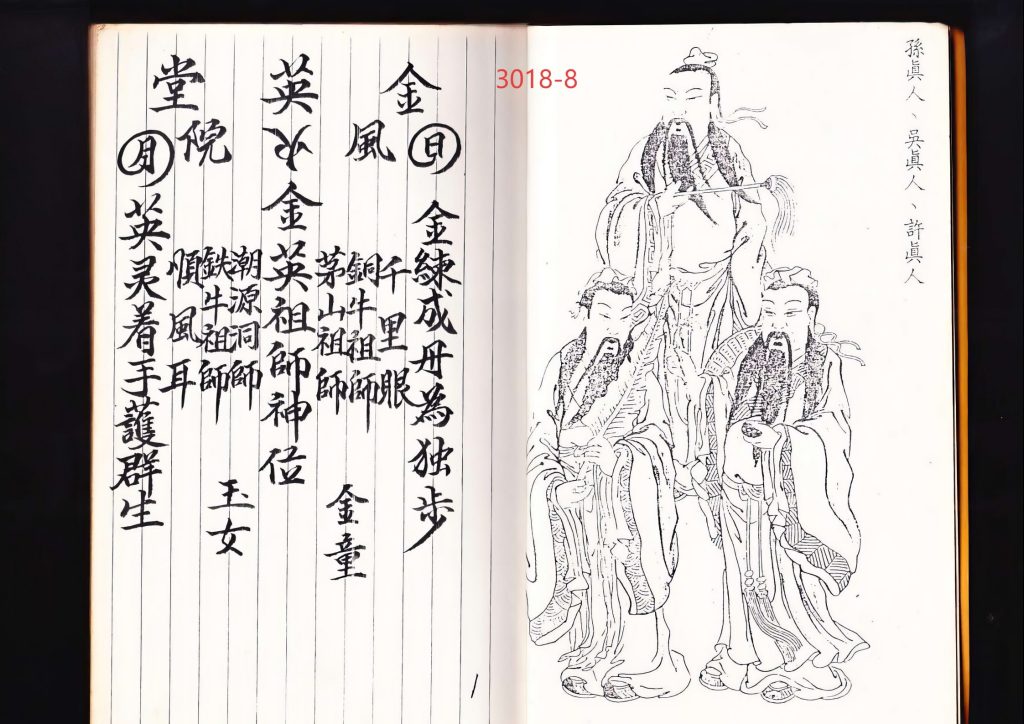 3018-8
孫眞人、吳眞人、許眞人
金英堂
風院
日
金練成丹為独步
千里眼
銅牛祖師
茅山祖師
金童
金英祖師神位
潮源洞師
鉄牛祖師
順風耳
玉女
月
英灵着手護群生
1